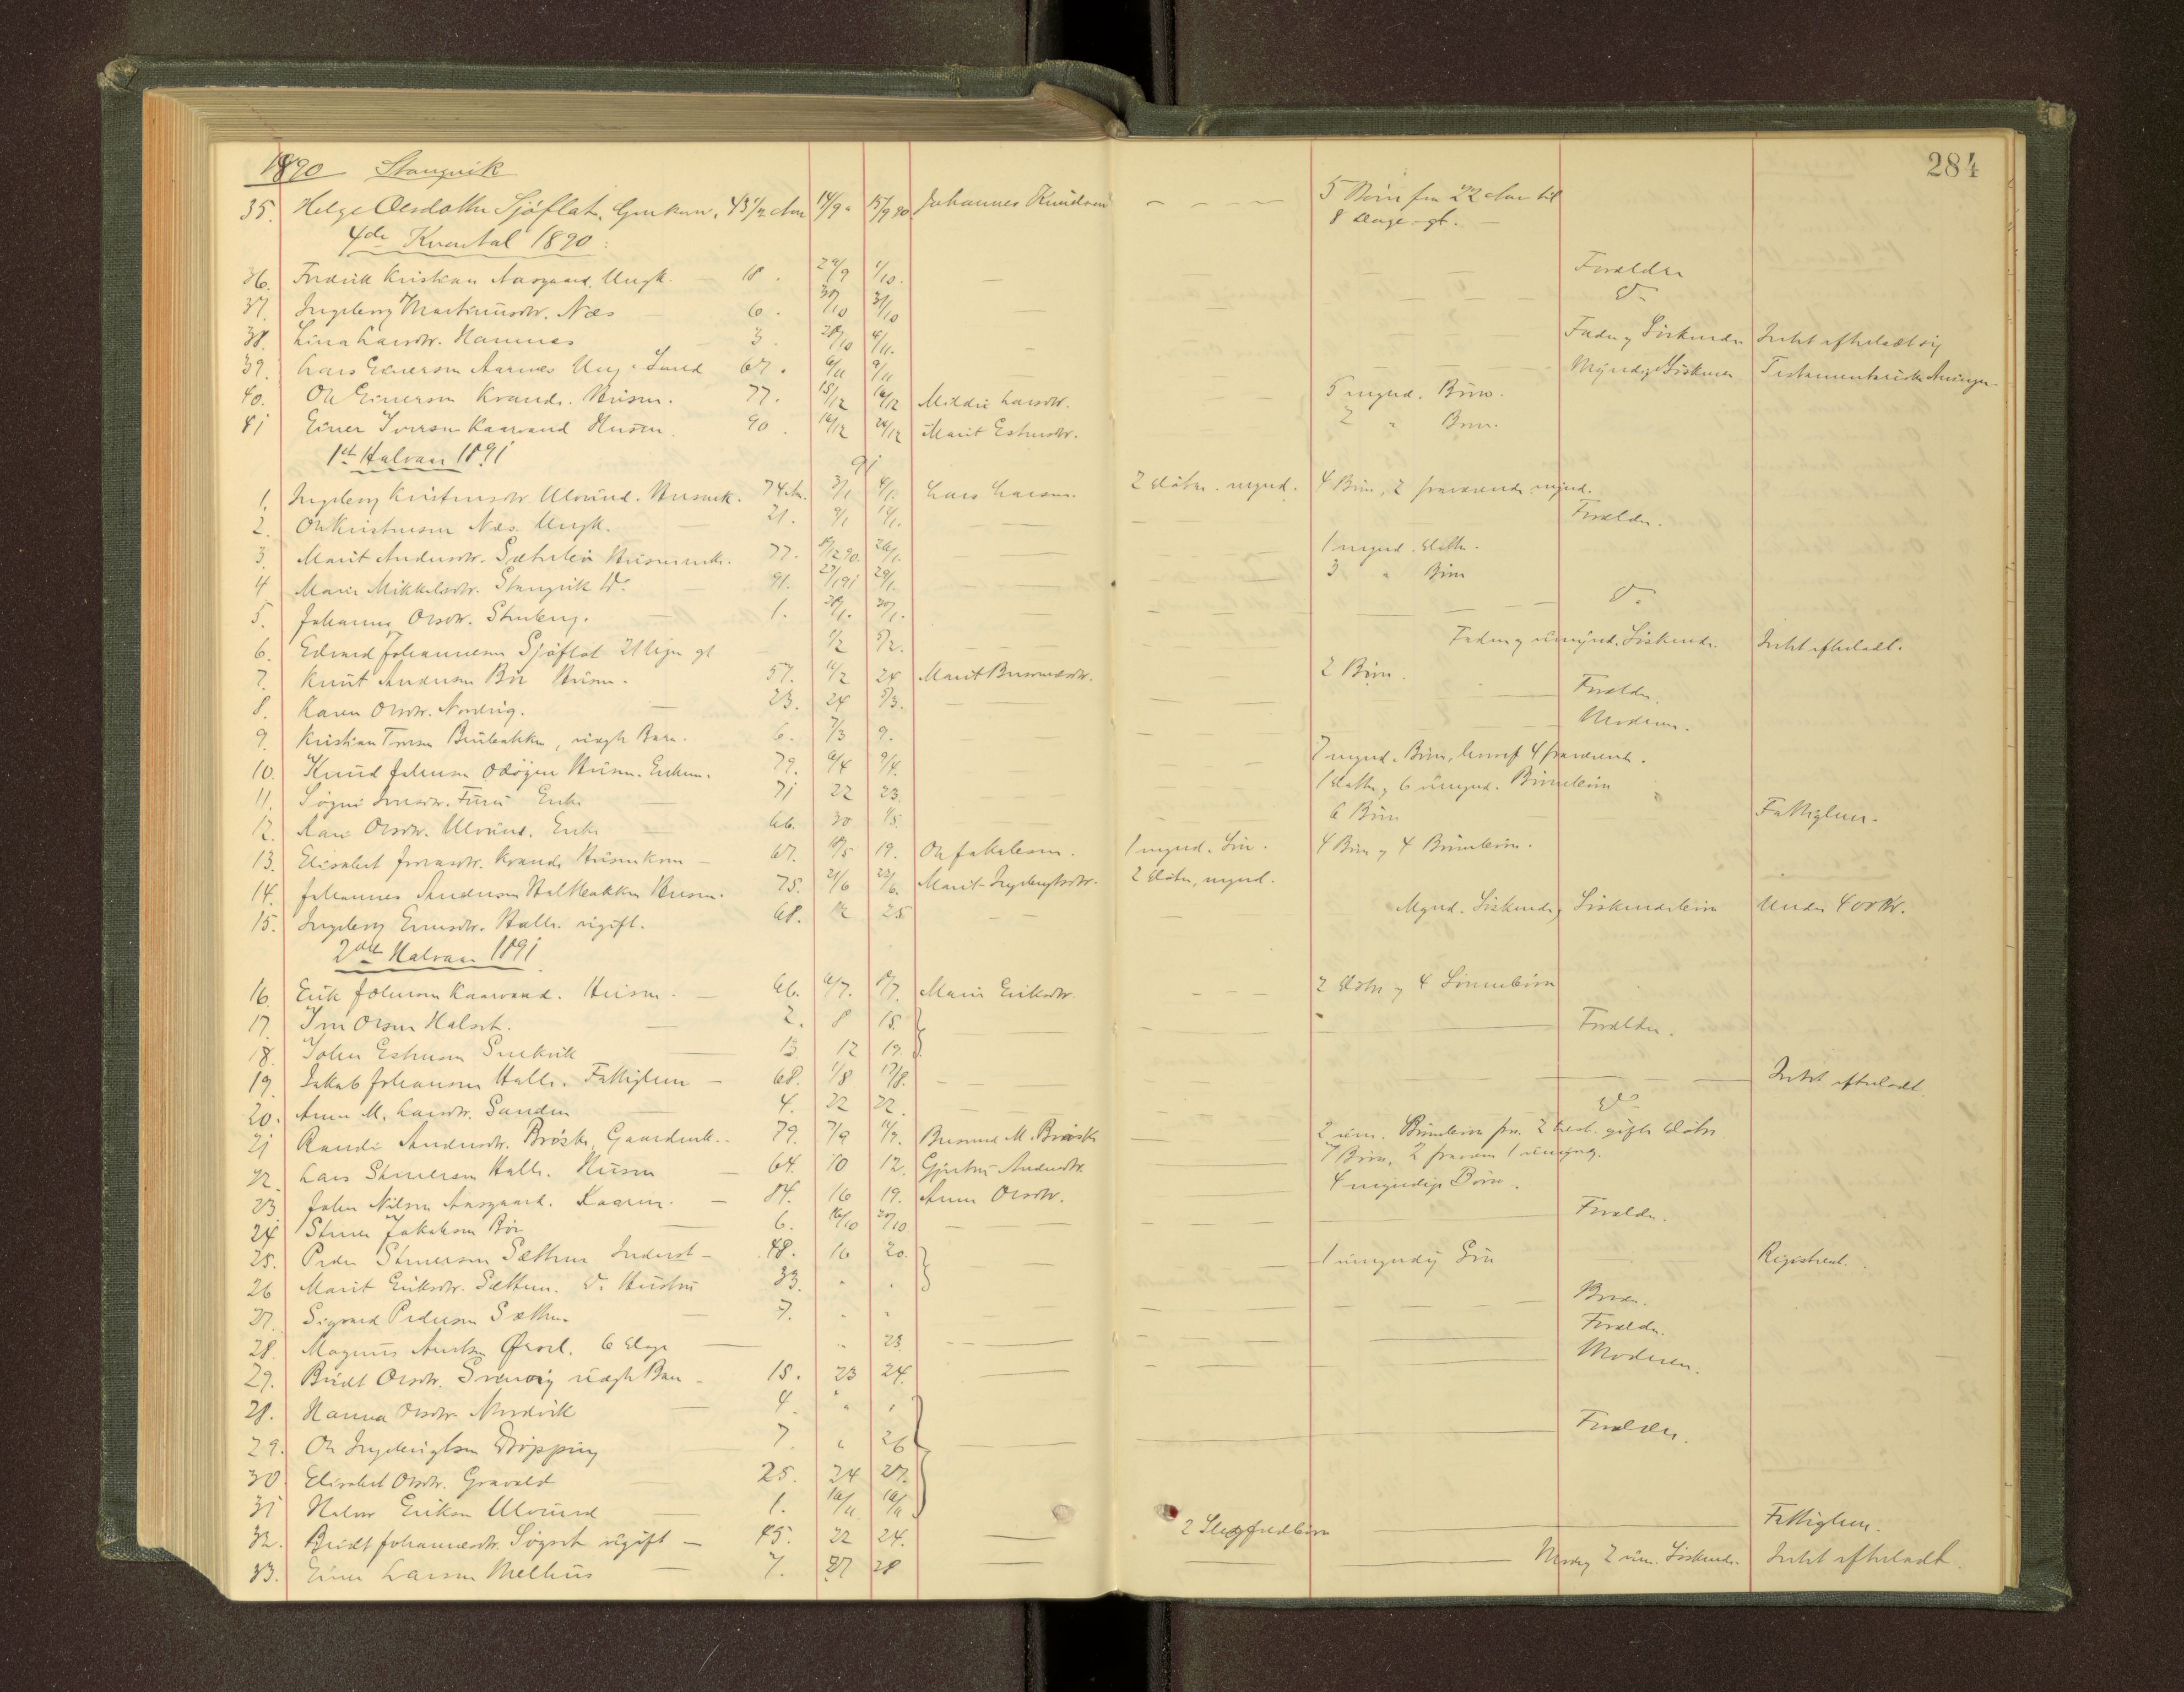 284
1890 Stangvik
35. Helge Olsdatter Sjøflat, Gmkone, 43 1/2 Aar 14/9 15/9 90 Johannes Knudsen — — — — 5 Børn fra 22 Aar til
8 Dage gl.
4de Kvartal 1890:
36. Fredrik Kristian Aasgaard, Ungk. 18. 29/9 1/10. — Forældre
37. Ingeborg Martinusdtr. Næs — 6. 30/10 31/10 — Do
38. Lina Larsdtr. Hamnes 3. 28/10 4/11. — Fader og Søskende Intet efterladt sig
39. Lars Einersen Aarnes Ung. 67. 6/11 9/11 — Myndige Søskende Testamentariske
40. Ole Einersen Kvande. Husm. 77. 15/12 16/12 Larsdtr. 5 mynd. Børn.
41 Einer Iversen Kaarvand Husm. 90. 16/12 20/12 Marit Estensdtr. 2 " Børn.
1st Halvaar 1891
91
1. Ingeborg Kristensdtr Ulvund. Husmk. 74 Aar. 3/1 4/1. Lars Larsen. 2 Døtre. mynd. 4 Børn, 2 fraværende mynd.
2. Ole Kristensen Næs. Ungk. — 21. 9/1 12/1. — Forældre.
3. Marit Andersdtr. Husmenke. 77. 12 90. 26/1. — 1 mynd. Datter.
4 Marie Mikkelsdtr. Stangvik Do 91. 27/1 91 29/1. — 3 " Børn
5. Johanna Olsdtr. Stenberg. — 1. 28/1. 30/1. — Do
6. Edvard Johannesen Sjøflat 21 Uger gl — 1/2 5/2. — Fader og umynd. Søskende. Intet efterladt.
7. Knut Andersen Bøe Husm. 57. 16/2 24 Marit 2 Børn.
8. Karen Olsdtr. Nordvig. — 23. 24 5/3. — Forældre.
9. Kristian Brubakken, uægte Barn. 6. 7/3 9. — Moderen.
10. Knud Johnsen Ødegaard Husm. Enkem. 79. 6/4 9/4. — 7 mynd. Børn, hvoraf 4 fraværende.
11. Furu Enke — 71 22 23. — 1 Datter og 6 umynd. Børnebørn
12. Rani Olsdtr. Ulvund. Enke — 66. 30 1/5. — 6 Børn Fattiglem.
13. Elisabet Jonasdtr. Kvande Husmkone — 67. 18/5 19. Ole Jakobsen. 1 mynd. Søn. 4 Børn og 4 Børnebørn.
14. Johannes Andersen Halsbakken Husm. 75. 21/6 22/6. Marit Ingebrigtsdtr. 2 Døtre, mynd.
15. Ingeborg Einersdtr. Halle. ugift. 68. 12 25 — Mynd. Søskende og Søskendebørn Under 400 Kr.
2det Halvaar 1891
16. Erik Johnsen Kaarvand. Husm. — 66. 6/7. 8/7. Marie Eriksdtr. — — — 2 Døtre og 4 Sønnebørn
17. Iver Olsen Halset. — 2. 8 15. — Forældre.
18. John Estensen — 13 12 19.
19. Jakob Johansen Halle. Fattiglem — 68. 1/8 17/8. — Intet efterladt.
20. Anne M. Larsdtr. Sanden — 4. 22 22. — Do
21 Randi Andersdtr. Brøske, Gaardmk. 79. 7/9 11/9. M. Brøske — 2 um. Børnebørn fra 2 gifte Døtre
22. Lars Halle. Husm — 64. 10 12. Gjertru Andersdtr. — 7 Børn, 2 fravær. 1 umynd.
23 John Nilsen Aasgaard. Kaarm. — 84. 16 19. Anne Olsdtr. — 4 myndige Børn.
24 Jakobsen Bøe — 6. 16/10 20/10 — Forældre.
25. Peder Sæther Inderst — 48. 16 20. — 1 umyndig Søn Registreret.
26 Marit Eriksdtr. Sæther. Ds Hustru 33. " "
27. Sigvard Pedersen Sæther — 7. " " — Broder.
28. Magnus 6 Dage — " 23. — Forældre.
29. Bridt Olsdtr. uægte Barn — 15. 23 24. — Moderen.
28. Hanna Olsdtr Nordvik — 4. " "
29. Ole Ingebrigtsen 7. " 26 — Forældre.
30 Elisabet Olsdtr. Gravold 25. 24 27.
31 Halvor Eriksen Ulvund — 1. 16/11 18/11
32. Bridt Johannesdtr. ugift — 45. 22 24. — 2 Slegfredbørn — Fattiglem.
33. Einer Larsen Melhus — 7. 27 28 — Moder og 2 um. Søskende. Intet efterladt.